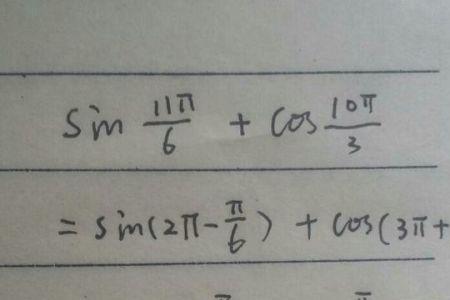 sin 11π/6 + cos 10π/3
= sin(2π-π/6) + cos(3π+